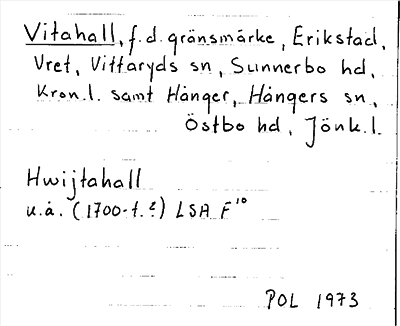 Vitahall, f.d. gränsmärke, Erikstad,
Vret, Vittaryds sn, Sunnerbo hd,
Kron.l. samt Hånger, Hångers sn,
Östbo hd, Jönk.l.
Hwijtahall
u.å. (1700-t.?) LSA F¹⁰
POL 1973